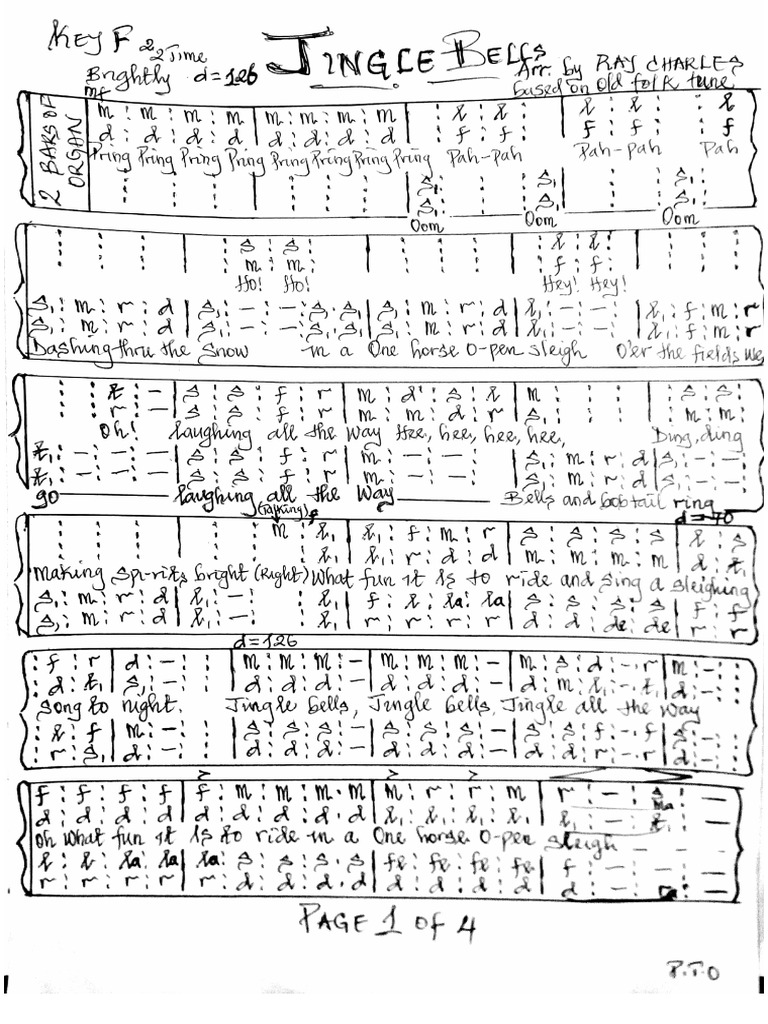 KEY F 2 2 Time
JINGLE BELLS
Brightly d=126
Arr. by RAY CHARLES
based on old folk tune
mf
2 BARS OF ORGAN
m : m : m : m | m : m : m : m
d : d : d : d | d : d : d : d | : f : f : | f : f : : f
Pring Pring Pring Pring Pring Pring Pring Pring Pah-pah Pah-pah Pah
Oom Oom Oom
: s : s :
: m : m : : f : f :
Ho! Ho! Hey! Hey!
s, : m : r : d | s, : - : - : s, . s, | s, : m : r : d | l, : - : - : | l, : f : m : r
s, : m : r : d | s, : - : - : s, . s, | s, : m : r : d | l, : - : - : | l, : f : m : r
Dashing thru the Snow in a One horse O-pen sleigh O'er the fields we
s : s : f : r | m : d' : s : l | m : : : | : : s : s
: : r : - | s : s : f : r | m : m : d : r | s, : : : | : : m : m
Oh! laughing all the way Hee, hee, hee, hee, Ding, ding
t, : - : - : - | s : s : f : r | m : - : - : | s, : m : r : d | s, : - : - :
t, : - : - : - | s : s : f : r | m : - : - : | s, : m : r : d | s, : - : - :
go laughing all the Way Bells and bobtail ring
(Talking) d=70
: : m : l, | l, : f : m : r | s : s : s : s | l : s
: : : l, | l, : r : d : d | m : m : m : m | d : t,
Making Spi-rits bright (Right) What fun it is to ride and sing a sleighing
s, : m : r : d | l, : - : : l, | f : l : la : la | s : s : s : s | f : f
s, : m : r : d | l, : - : : l, | r : r : r : r | d : d : de : de | r : r
d=126
: f : r | d : - : : | m : m : m : - | m : m : m : - | m : s : d : - . r | m : - : :
: d : t, | s, : - : : | d : d : d : - | d : d : d : - | d : m : l, : - . t, | d : - : :
Song to night. Jingle bells, Jingle bells, Jingle all the way
: l : f | m : - : : | s : s : s : - | s : s : s : - | s : s : f : - . f | s : - : :
: r : s, | d : - : : | d : d : d : - | d : d : d : - | d : d : r : - . r | d : - : :
> > >
f : f : f : f | f : m : m : m . m | m : r : r : m | r : - : s : -
d : d : d : d | d : d : d : d . d | l, : l, : l, : l, | l, : - : t, : -
Oh what fun it is to ride in a One horse O-pen sleigh
l : l : la : la | la : s : s : s . s | fe : fe : fe : fe | f : - : - : -
r : r : r : r | r : d : d : d . d | d : d : d : d | d : - : : -
PAGE 1 OF 4
P.T.O